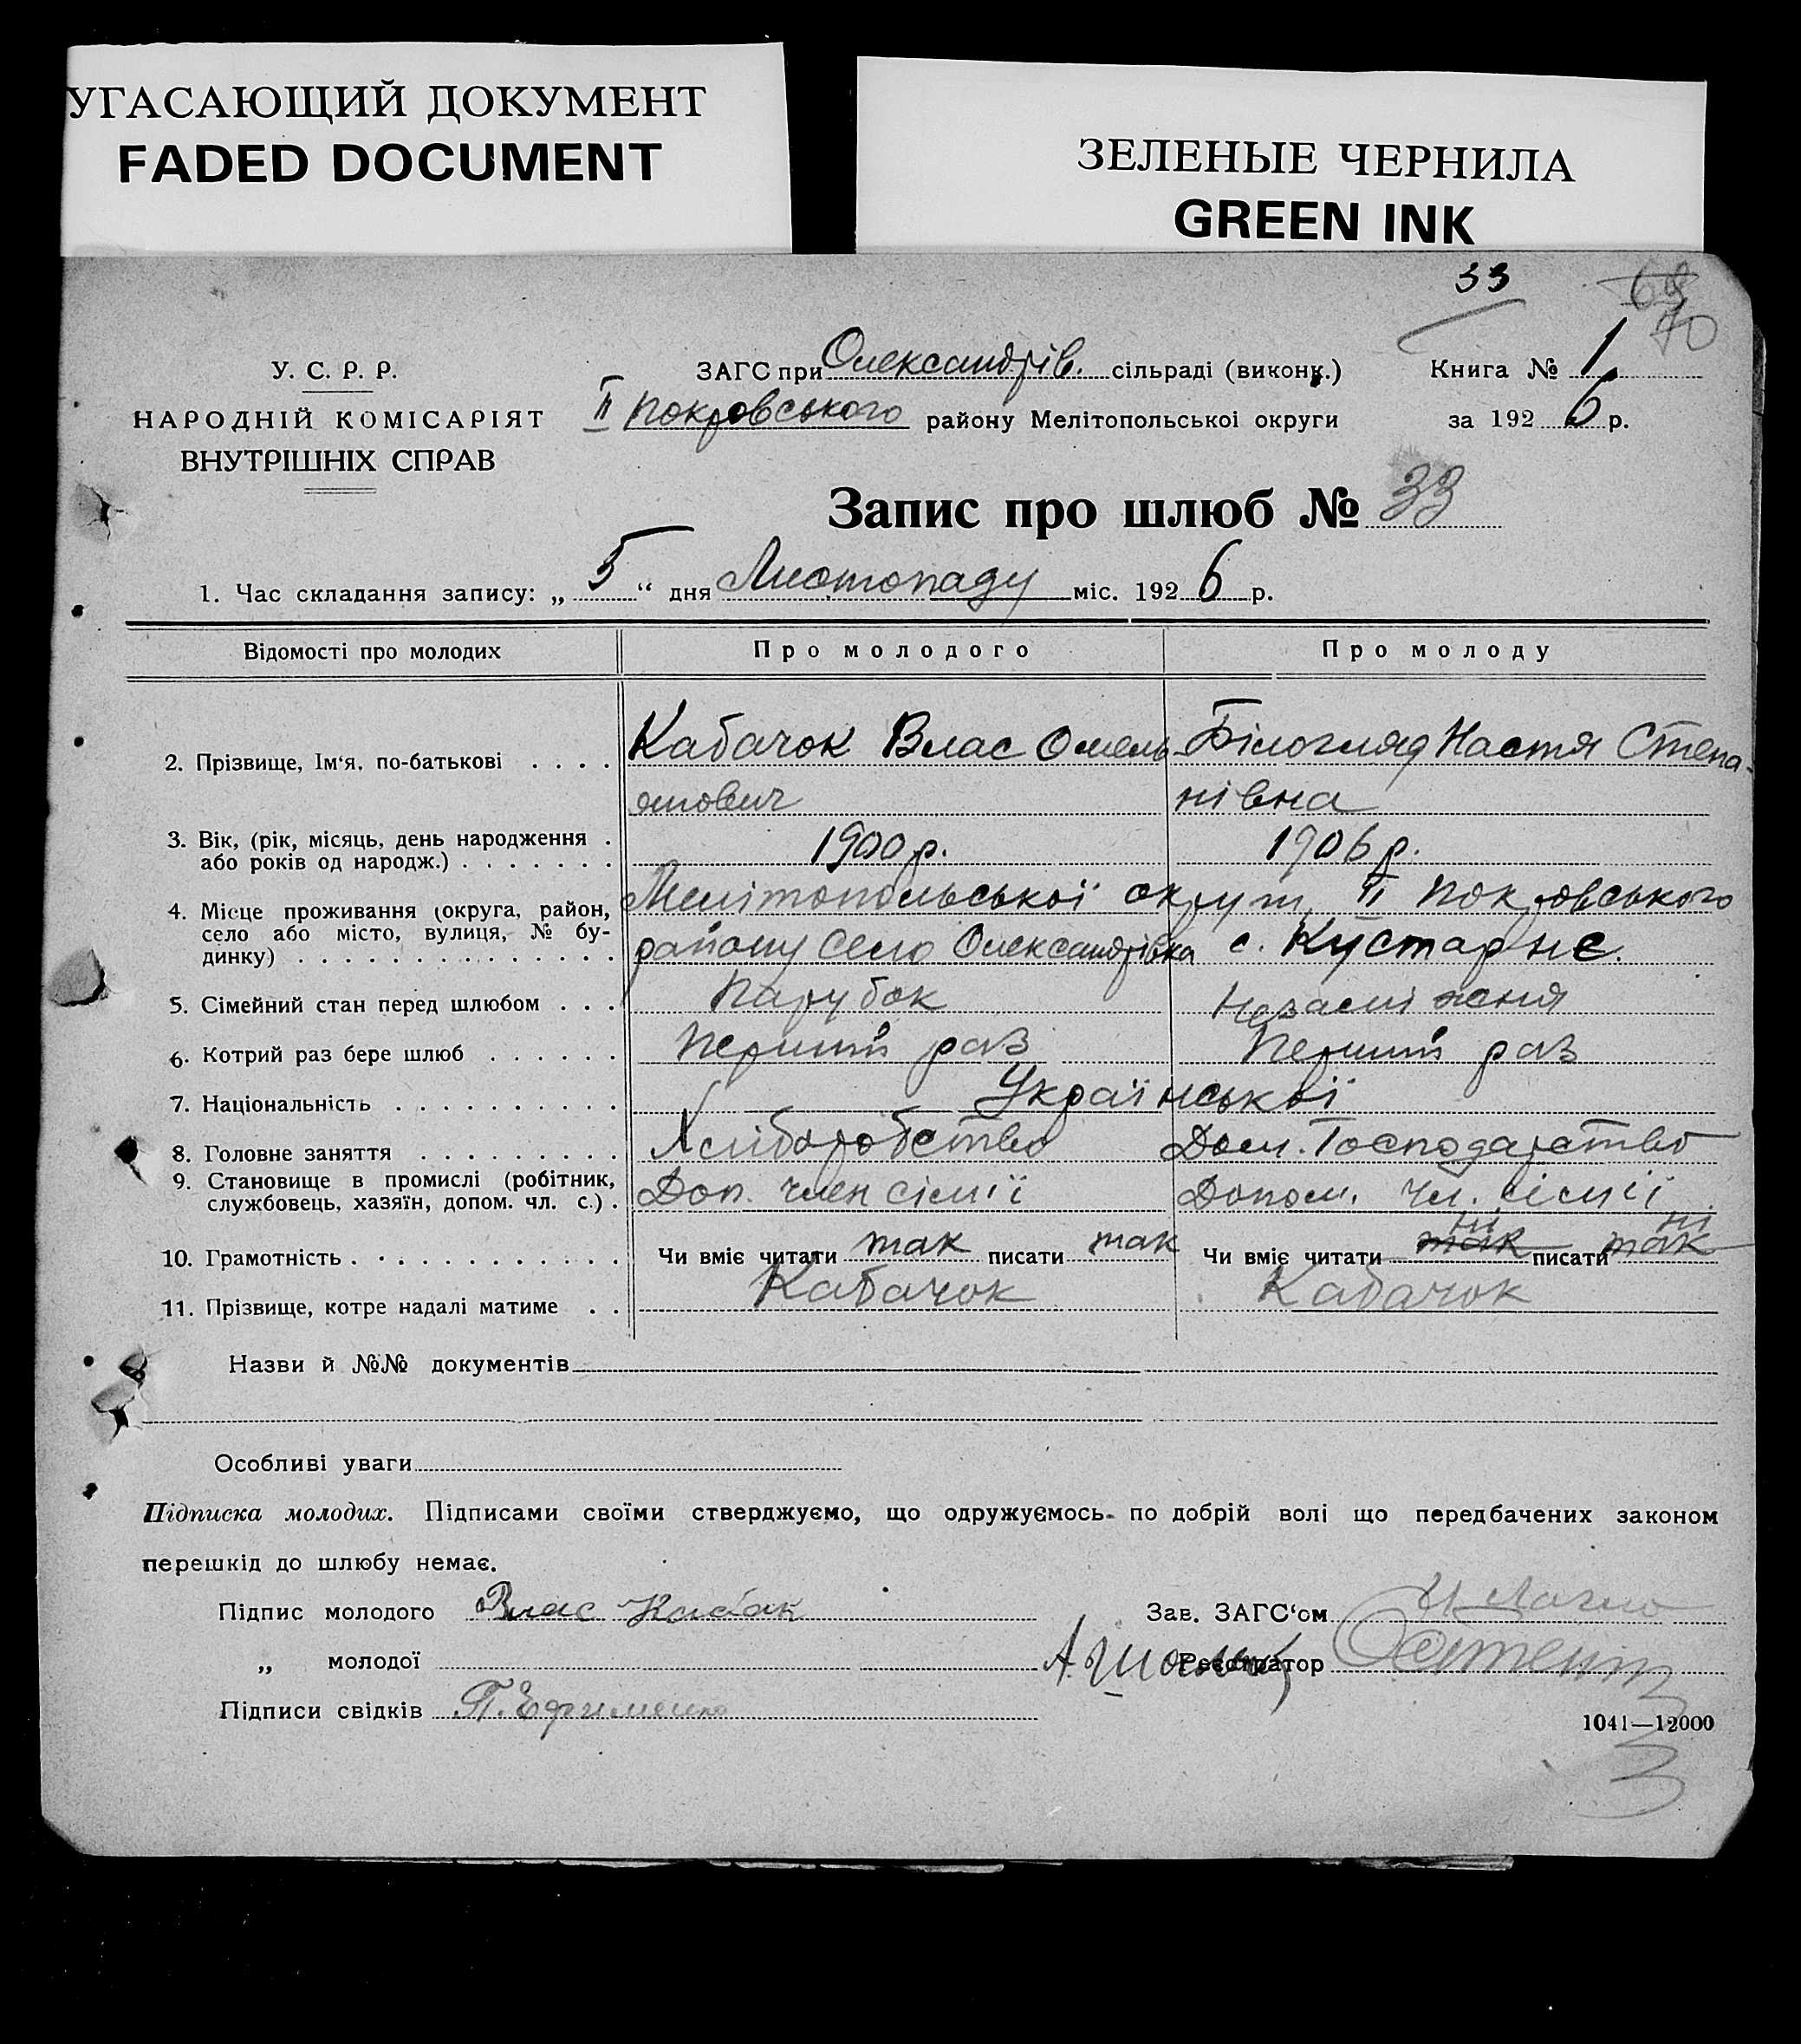 УГАСАЮЩИЙ ДОКУМЕНТ
FADED DOCUMENT
ЗЕЛЕНЫЕ ЧЕРНИЛА
GREEN INK
33
69
70
У. С. Р. Р.
НАРОДНІЙ КОМІСАРІЯТ
ВНУТРІШНІХ СПРАВ
ЗАГС при Олександрів. сільраді (виконк.)
II Покровського району Мелітопольської округи
Книга № 1
за 1926 р.
Запис про шлюб № 33
1. Час складання запису: „ 5 “ дня Листопаду міс. 1926 р.
Відомості про молодих Про молодого Про молоду
2. Прізвище, Ім‘я, по-батькові . . . . Кабачок Влас Омель Білогляд Настя Степа-
янович нівна
3. Вік, (рік, місяць, день народження .
або років од народж.) . . . . . . . 1900 р. 1906 р.
4. Місце проживання (округа, район, Мелітопольської округи, II Покровського
село або місто, вулиця, № бу-
динку) . . . . . . . . . . . . . . району село Олександрівка с. Кустарнє.
5. Сімейний стан перед шлюбом . . . Парубок Незаміжня
6. Котрий раз бере шлюб . . . . . . Перший раз Перший раз
7. Національність . . . . . . . . . . Української
8. Головне заняття . . . . . . . . . Хліборобство Дом. Господарство
9. Становище в промислі (робітник,
службовець, хазяїн, допом. чл. с.) . Доп. член сімії Допом. чл. сімії
ні ні
10. Грамотність . . . . . . . . . . . Чи вміє читати так писати так Чи вміє читати так писати так
11. Прізвище, котре надалі матиме . . Кабачок Кабачок
Назви й №№ документів
Особливі уваги
Підписка молодих. Підписами своїми стверджуємо, що одружуємось по добрій волі що передбачених законом
перешкід до шлюбу немає.
Підпис молодого Влас Кабак
Зав. ЗАГС‘ом
„ молодої
Реєстратор
Підписи свідків П. Ефименко
1041—12000
3